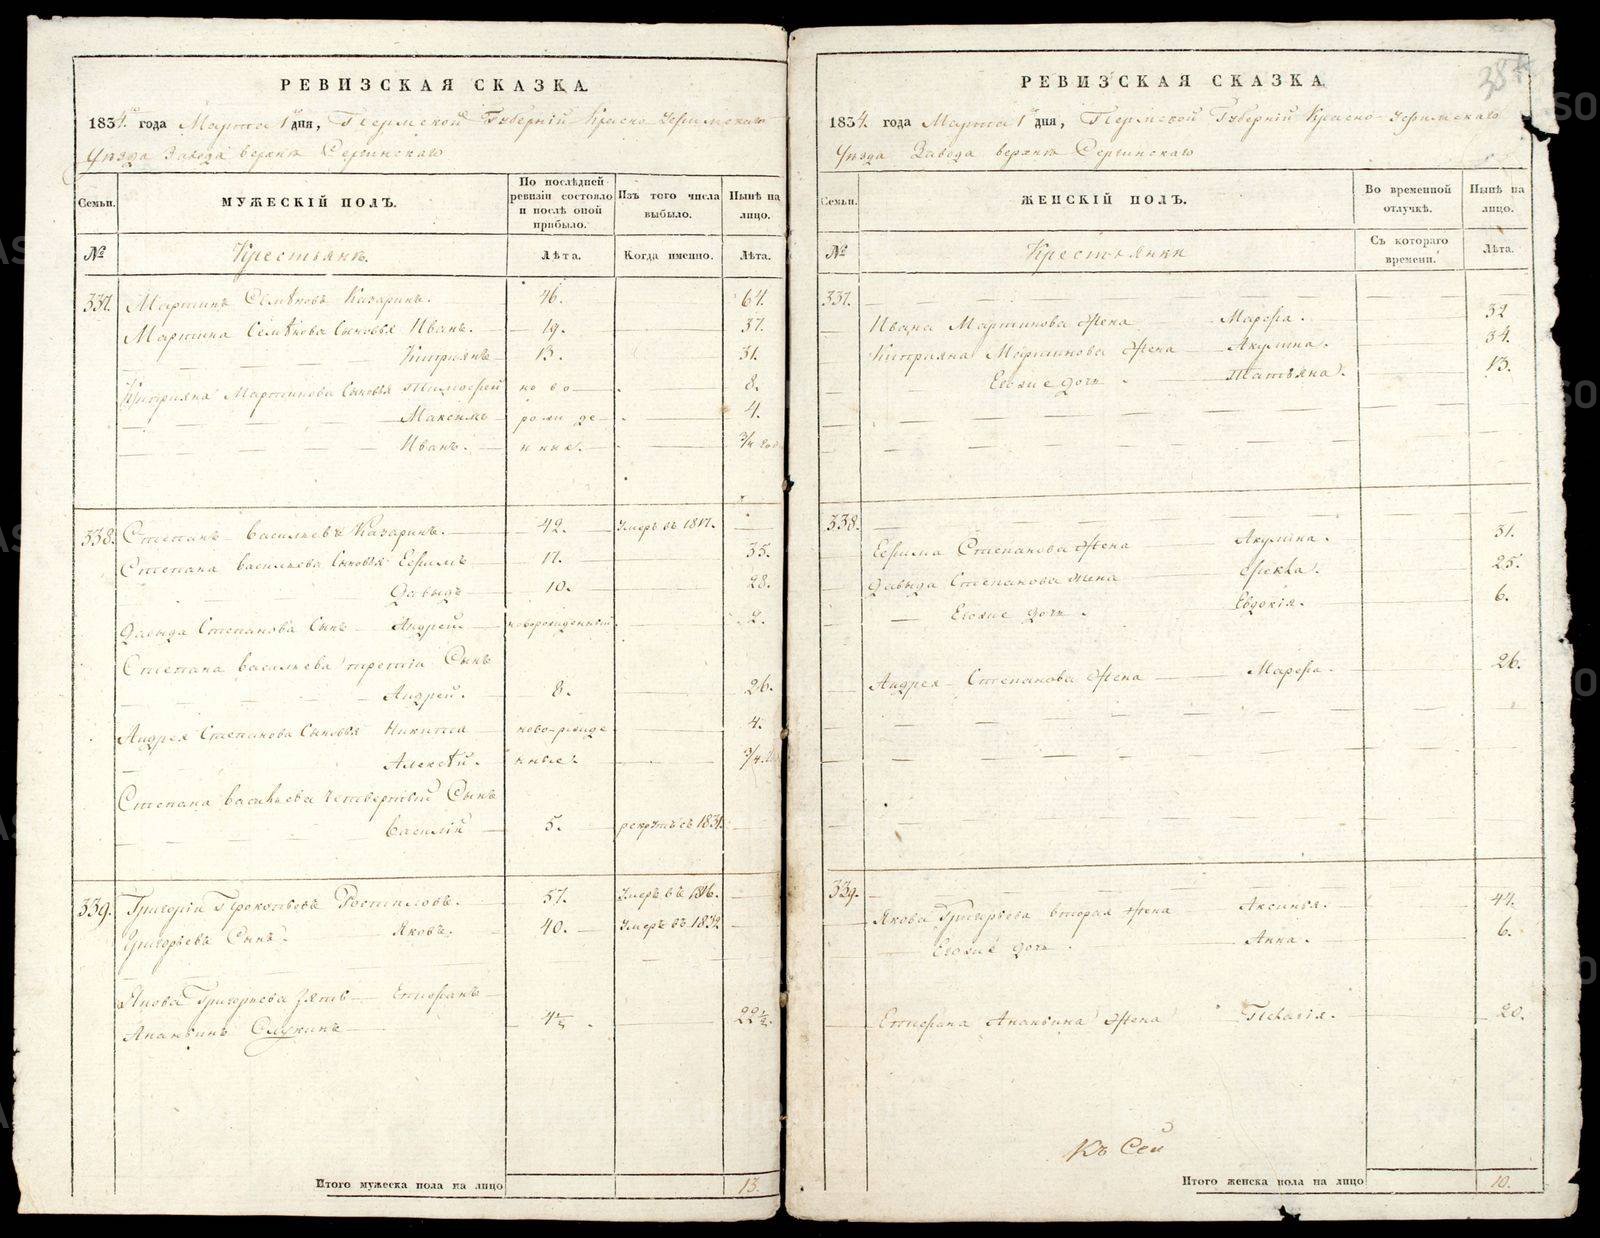 РЕВИЗСКАЯ СКАЗКА.
1834 года Марта 1 дня, Пермской Губерніи Красно Уфимскаго
Уѣзда Завода верхнѣ Сергинскаго
Семьи.
МУЖЕСКІЙ ПОЛЪ.
По послѣдней ревизіи состояло и послѣ оной прибыло.
Изъ того числа выбыло.
Нынѣ на лицо.
№
Крестьянъ.
Лѣта.
Когда именно.
Лѣта.
337. Мартинъ Семёновъ Казаринъ. 46. 64.
Мартина Семёнова Сыновья Иванъ. 19. 37.
Кипріянъ 13. 31.
Кипріяна Мартинова Сыновья Тимофей но во 8.
Максимъ рожде 4.
Иванъ. нные. 3/4 год
338. Степанъ Васильевъ Казаринъ. 42. Умеръ въ 1817.
Степана Васильева Сыновья Ефимъ 17. 35.
Давыдъ 10. 28.
Давыда Степанова Сынъ Андрей новорожденный 2.
Степана Васильева третій Сынъ
Андрей. 8. 26.
Андрея Степанова Сыновья Никита ново-рожде 4.
Алексѣй. нные. 3/4
Степана Васильева четвертый Сынъ
Василій 5. рекрутъ съ 1831.
339. Григорій Прокопьевъ Ростиловъ. 57. Умеръ въ 1816.
Григорьевъ Сынъ. Яковъ. 40. Умеръ въ 1832
Якова Григорьева зять Епифанъ
Ананьинъ 4 1/2. 22 1/2.
Итого мужеска пола на лицо 13.
РЕВИЗСКАЯ СКАЗКА.
1834. года Марта 1 дня, Пермской Губерніи Красно-Уфимскаго
Уѣзда Завода верхнѣ Сергинскаго
Семьи.
ЖЕНСКІЙ ПОЛЪ.
Во временной отлучкѣ.
Нынѣ на лицо.
№
Крестьянки
Съ котораго времени.
Лѣта.
337.
Ивана Мартинова Жена Марфа. 32
Кипріяна Мартинова Жена Акулина. 34.
Егоже дочь Татьяна. 13.
338.
Ефима Степанова Жена Акулина. 31.
Давыда Степанова жена Фекла. 25.
Егоже дочь. Евдокія. 6.
Андрея Степанова Жена Марфа. 26.
339.
Якова Григорьева вторая Жена Аксинья. 44.
Егоже дочь. Анна. 6.
Епифана Ананьина Жена Пелагія. 20.
Къ Сей
Итого женска пола на лицо 10.